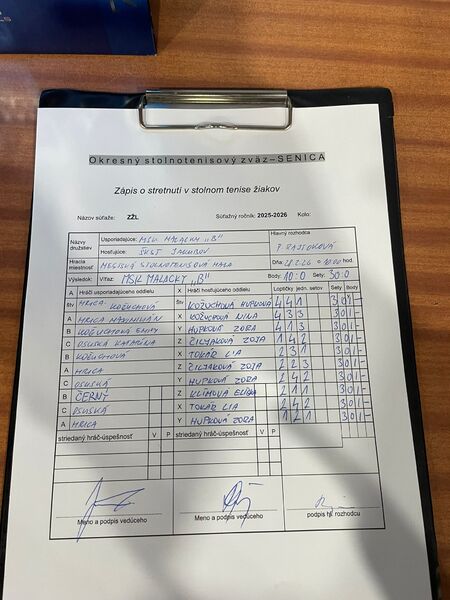 Okresný stolnotenisový zväz – SENICA
Zápis o stretnutí v stolnom tenise žiakov
Názov súťaže: ZŽL Súťažný ročník: 2025-2026 Kolo:
Názvy družstiev Usporiadajúce: MSK MALACKY „B" Hlavný rozhodca
Hosťujúce: ŠKST JAKUBOV
Hracia miestnosť MESTSKÁ STOLNOTENISOVÁ HALA Dňa: hod.
Výsledok: Víťaz: MSK MALACKY „B" Body: 10:0 Sety: 30:0
A Hráči usporiadajúceho oddielu X Hráči hosťujúceho oddielu Loptičky jedn. setov Sety Body
Štv HRICA KOŽUCHOVÁ Štv KOŽUCHOVÁ HUPKOVÁ 4 4 1 3 0 1 -
A HRICA MAXIMILIÁN X KOŽUCHOVÁ NINA 4 3 3 3 0 1 -
B KOŽUCHOVÁ EMMY Y HUPKOVÁ ZORA 4 1 3 3 0 1 -
C OSUSKÁ KATARÍNA Z ČILJAKOVÁ ZOJA 1 4 2 3 0 1 -
B KOŽUCHOVÁ X TOKÁR LIA 2 3 1 3 0 1 -
A HRICA Z ČILJAKOVÁ ZOJA 2 2 3 3 0 1 -
C OSUSKÁ Y HUPKOVÁ ZORA 2 4 2 3 0 1 -
B ČERNÝ Z KLIMOVÁ 2 1 1 3 0 1 -
C OSUSKÁ X TOKÁR LIA 2 4 2 3 0 1 -
A HRICA Y HUPKOVÁ ZORA 1 2 1 3 0 1 -
striedaný hráč-úspešnosť V P striedaný hráč-úspešnosť V P
Meno a podpis vedúceho Meno a podpis vedúceho podpis hl. rozhodcu